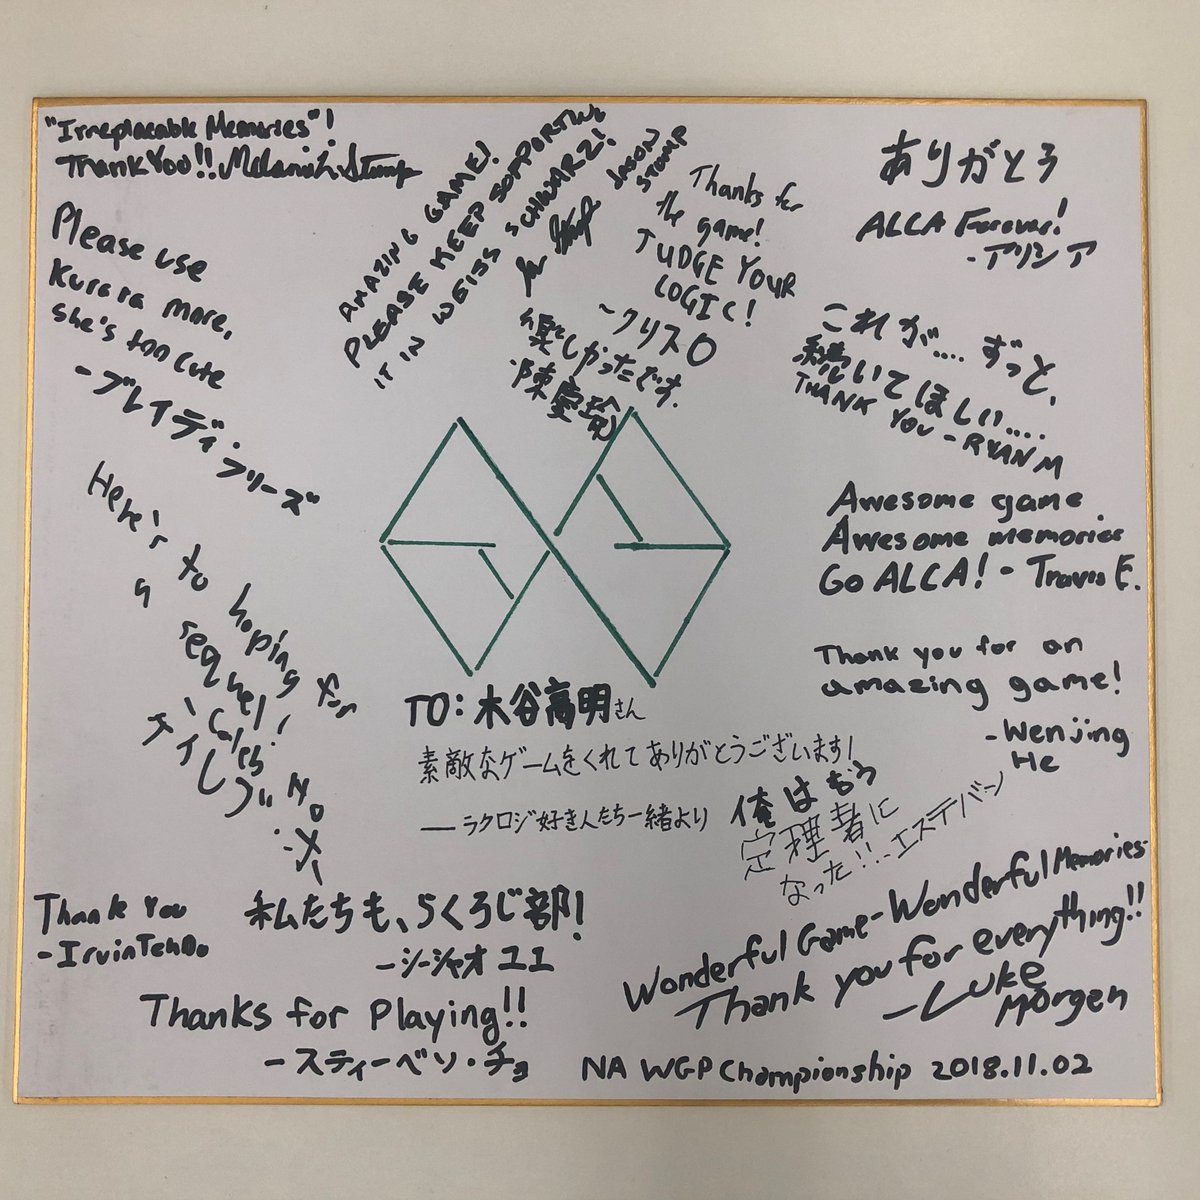 "Irreplacable Memories"!
Thank You!!
Please use
Kurara more,
she's too cute
-ブレイディ・フリーズ
AMAZING GAME!
PLEASE KEEP SUPPORTING
IT IN WEISS SCHWARZ!
JASON
STOMP
Thanks for
the game!
JUDGE YOUR
LOGIC!
~クリスO
楽しかったです.
ありがとう
ALCA Forever!
-アリシア
これが.... ずっと、
続いてほしい....
THANK YOU-RYAN M
Awesome game
Awesome memories
Go ALCA! - Travis E.
Thank you for an
amazing game!
-Wenjing
He
Here's to hoping for
a sequel!
-Caleb
TO: 木谷高明さん
素敵なゲームをくれてありがとうございます!
—ラクロジ好き人たち一緒より
俺はもう
定理者に
なった!!..エステバン
Thank You
-IrvinTenDo
私たちも、らくろじ部!
-シーシャオ ユエ
Thanks for Playing!!
-スティーベソ・チョ
Wonderful Game-Wonderful Memories-
Thank you for everything!!
-Luke
Morgen
NA WGP Championship 2018.11.02